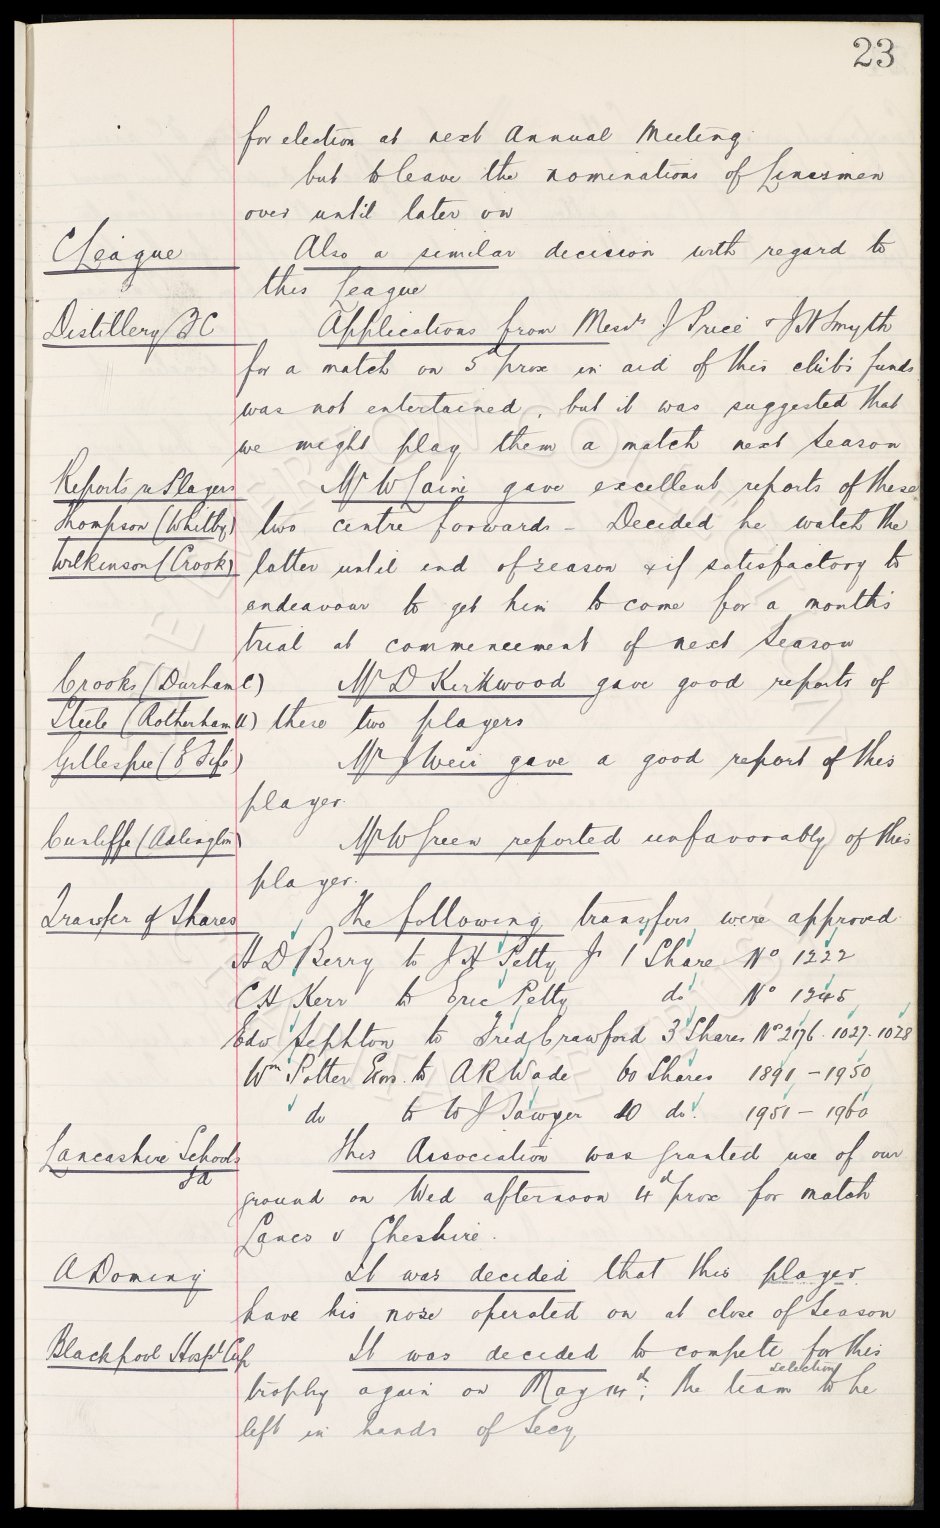 23
for election at next Annual Meeting
but to leave the nominations of Linesmen
over until later on
C League Also a similar decision with regard to
this League
Distillery FC Applications from Messrs J Price & J H Smyth
for a match on 5th prox in aid of this club's funds
was not entertained, but it was suggested that
we might play them a match next season
Reports re Players Mr W Caine gave excellent reports of these
Thompson (Whitby) two centre forwards - Decided he watch the
Wilkinson (Crook) latter until end of season & if satisfactory to
endeavour to get him to come for a months
trial at commencement of next season
Crooks (Durham C) Mr D Kirkwood gave good reports of
Steele (Rotherham U) these two players
Gillespie (E Fife) Mr J Weir gave a good report of this
player.
Cunliffe (Adlington) Mr W Green reported unfavorably of this
player.
Transfer of Shares The following transfers were approved
H D Berry to J H Petty Jr 1 Share No 1222
C H Kerr to Eric Petty do No 1245
Edw Sephton to Fred Crawford 3 Shares No 2176. 1027. 1028
Wm Potter Exors. to A R Wade 60 Shares 1891 - 1950
do to W J Sawyer 10 do. 1951 - 1960
Lancashire Schools This Association was granted use of our
FA
ground on Wed afternoon 4th prox for match
Lancs v Cheshire.
A Doming It was decided that this player
have his nose operated on at close of Season
Blackpool Hospl Cup It was decided to compete for this
trophy again on May 14th; the team selection to be
left in hands of Secy